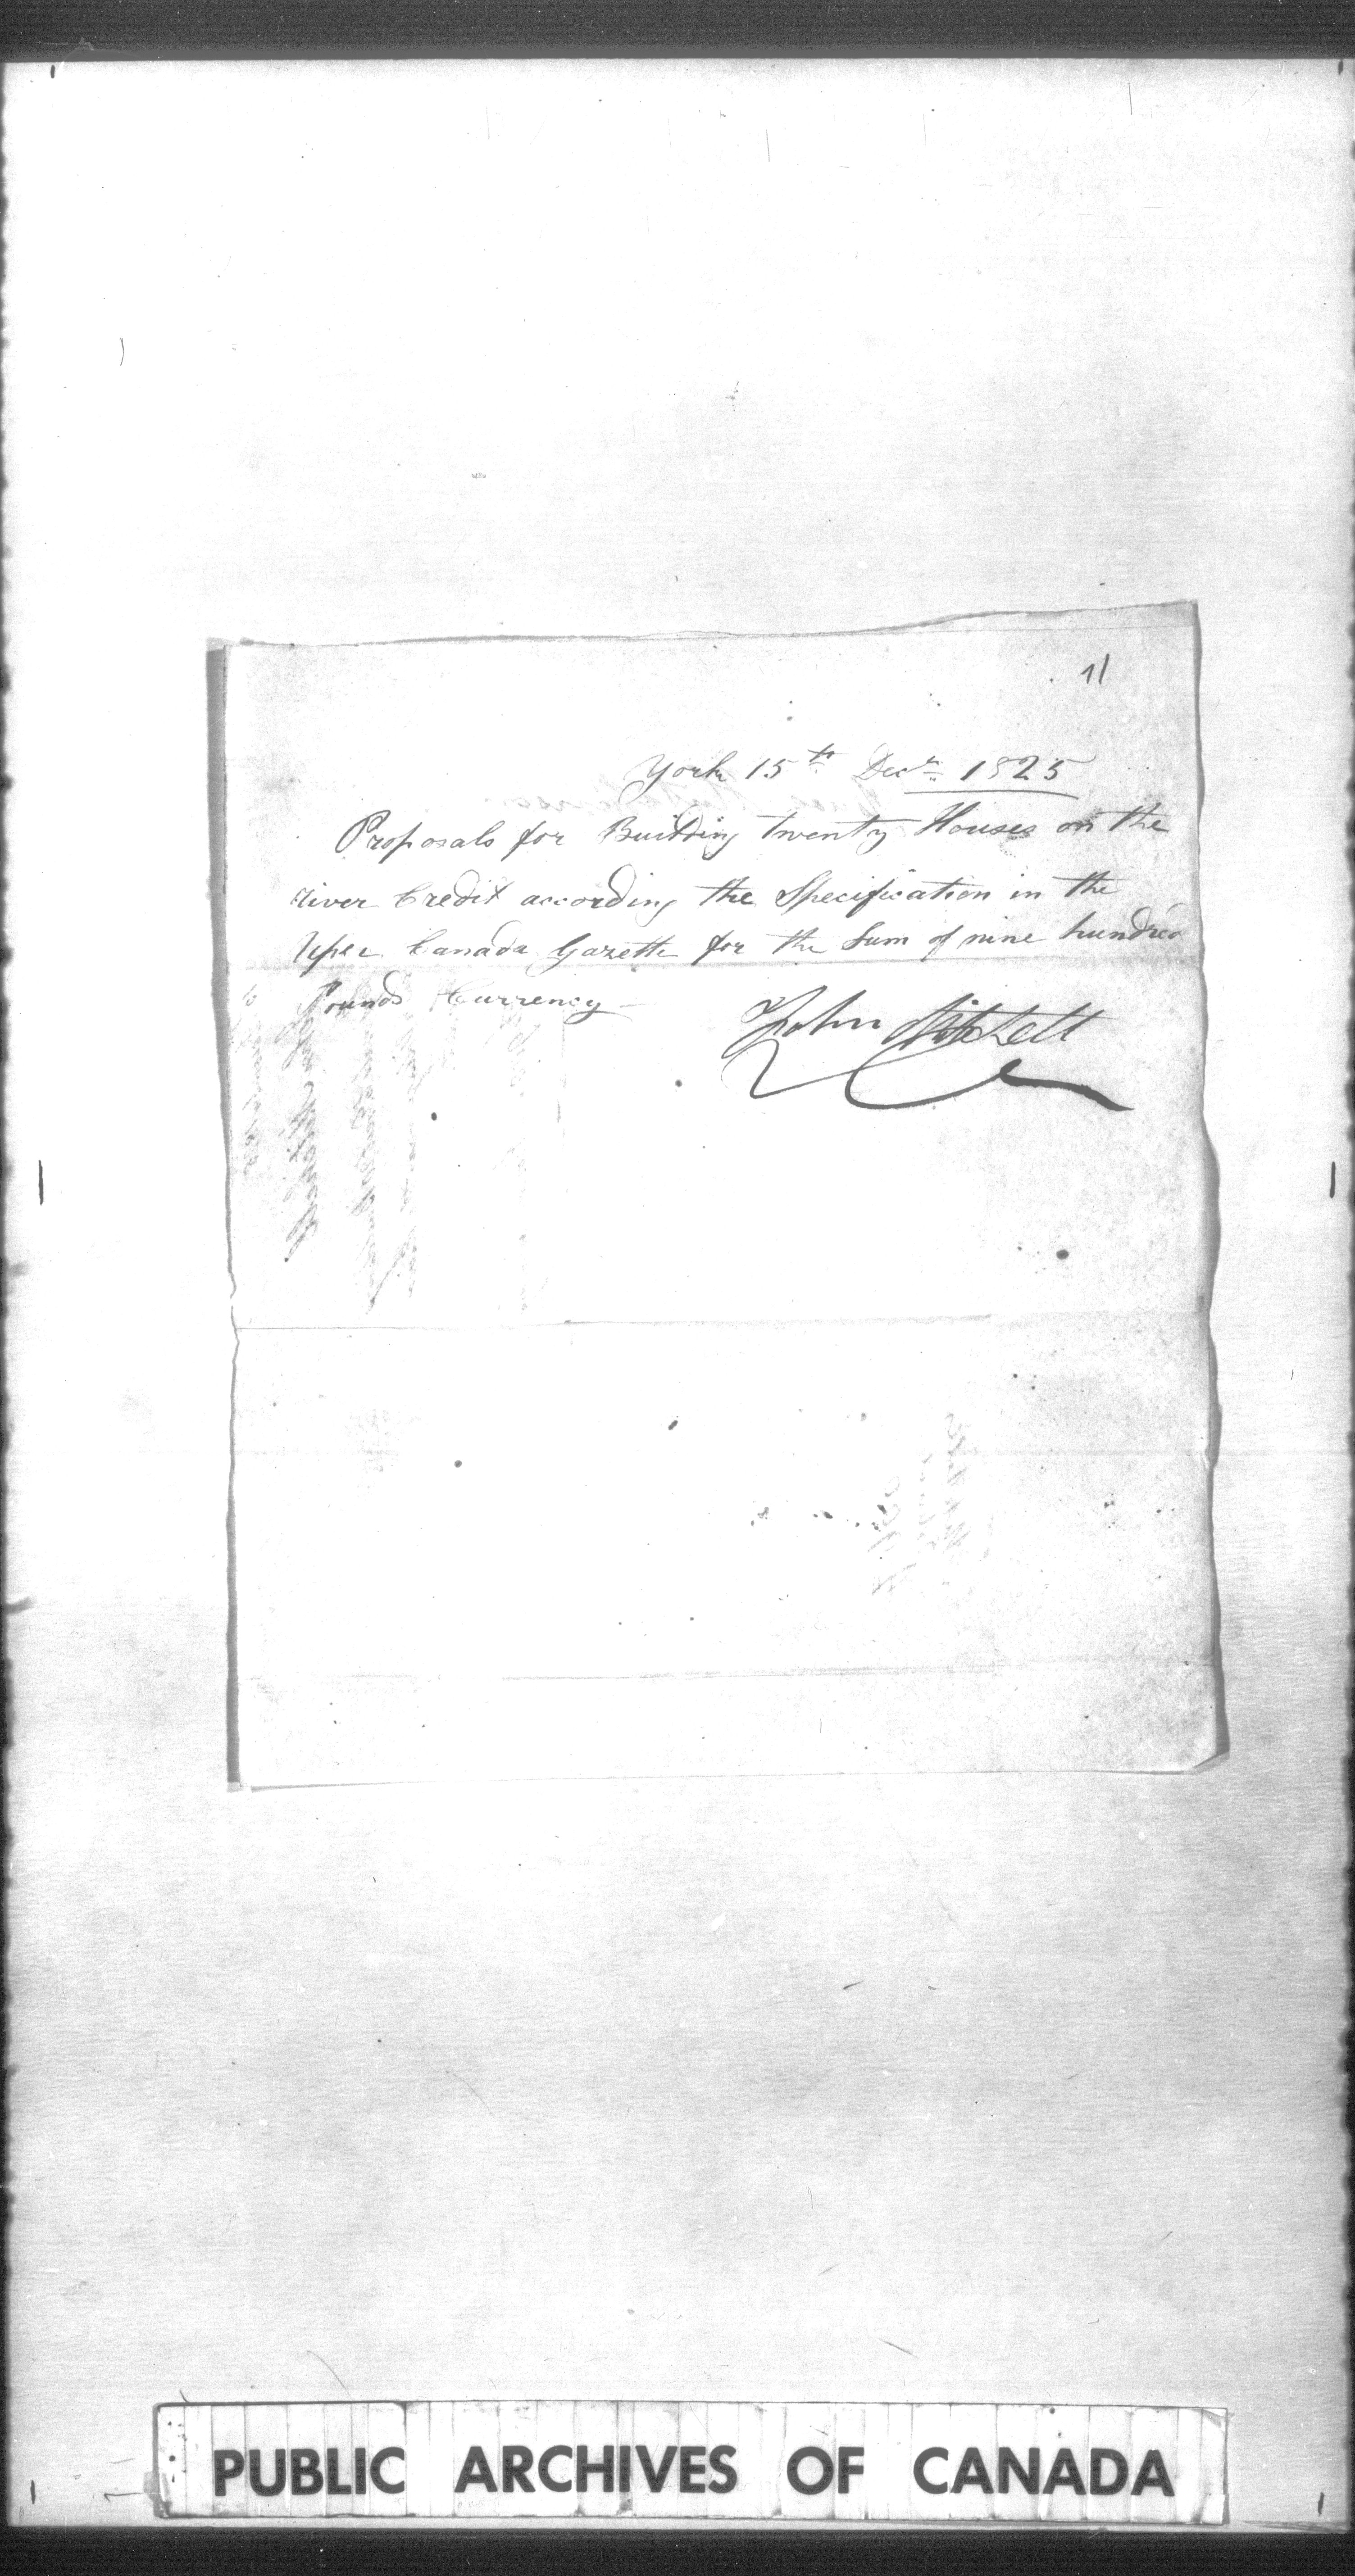 11
York 15th Decr 1825
Proposals for Building twenty Houses on the
river Credit according the Specification in the
Uper Canada Gazette for the Sum of nine hundred
Pounds Currency
John Mitchell
PUBLIC ARCHIVES OF CANADA